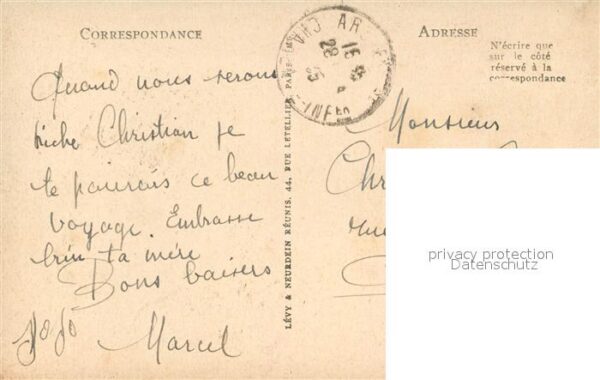 CORRESPONDANCE
ADRESSE
N'écrire que
sur le côté
réservé à la
correspondance
Quand nous serons
riche Christian je
te paierais ce beau
voyage. Embrasse
bien ta mère
Bons baisers
Jojo Marcel
LÉVY & NEURDEIN RÉUNIS, 44, RUE LETELLIER, PARIS
Monsieur
Chr
rue
privacy protection
Datenschutz